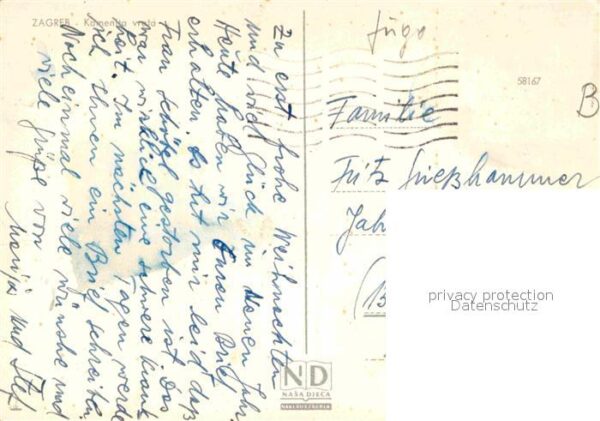 ZAGREB - Kamenita vrata
Zu erst frohe Weihnachten
und viel Glück im Neuen Jahr.
Heute haben wir Euren Brief
erhalten. Es tut mir leid daß
Frau gestorben ist. Das
war wirklich eine schwere Krank
heit. Im nächsten Tagen werde
ich Ihnen ein Brief schreiben.
Noch einmal viele Wünshe und
viele Grüße von
Marija und Stef
Jugo
58167
B
Familie
Fritz Grießhammer
Jah
(B
privacy protection
Datenschutz
ND
NAŠA DJECA